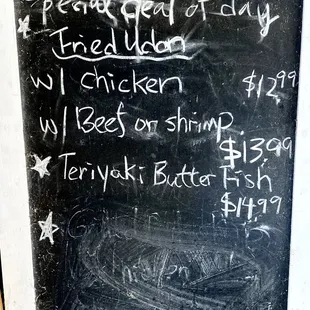 pecial deal of day
Fried Udon
w/ chicken $12.99
w/ Beef or shrimp
$13.99
Teriyaki Butter Fish
$14.99